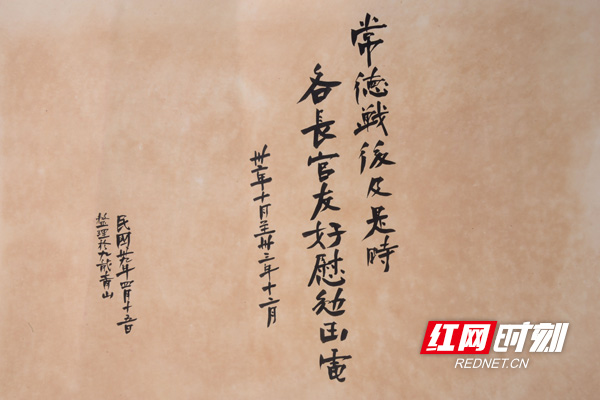 常德戦後及是時
各長官友好慰勉函電
卅二年十月至卅三年十二月
民国卅九年四月十五日
整理於九龍青山
红网时刻
REDNET.CN